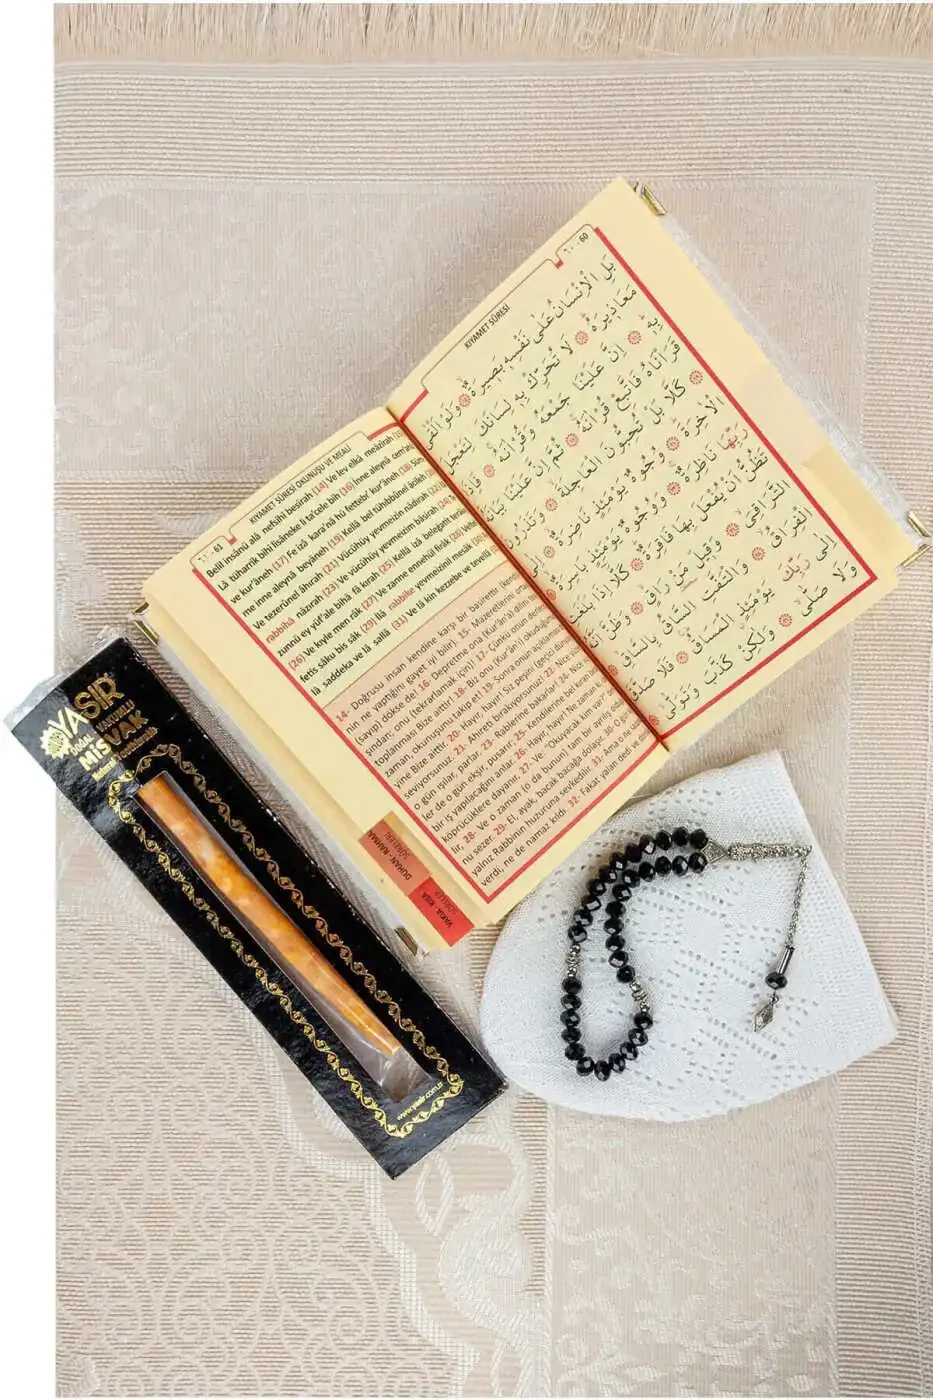 60 - ٦٠
KIYAMET SÛRESİ
بَلِ الْاِنْسَانُ عَلٰى نَفْسِهٖ بَصٖيرَةٌ وَلَوْ اَلْقٰى
مَعَاذٖيرَهُ لَا تُحَرِّكْ بِهٖ لِسَانَكَ لِتَعْجَلَ
بِهٖ اِنَّ عَلَيْنَا جَمْعَهُ وَقُرْاٰنَهُ فَاِذَا
قَرَاْنَاهُ فَاتَّبِعْ قُرْاٰنَهُ ثُمَّ اِنَّ عَلَيْنَا بَيَانَهُ
كَلَّا بَلْ تُحِبُّونَ الْعَاجِلَةَ وَتَذَرُونَ
الْاٰخِرَةَ وُجُوهٌ يَوْمَئِذٍ نَاضِرَةٌ
رَبِّهَا نَاظِرَةٌ وَوُجُوهٌ يَوْمَئِذٍ بَاسِرَةٌ
تَظُنُّ اَنْ يُفْعَلَ بِهَا فَاقِرَةٌ كَلَّا اِذَا بَلَغَتِ
التَّرَاقِيَ وَقٖيلَ مَنْ رَاقٍ وَظَنَّ اَنَّهُ
الْفِرَاقُ وَالْتَفَّتِ السَّاقُ بِالسَّاقِ
اِلٰى رَبِّكَ يَوْمَئِذٍ الْمَسَاقُ فَلَا صَدَّقَ
وَلَا صَلّٰى وَلٰكِنْ كَذَّبَ وَتَوَلّٰى
61 - ٦١
KIYAMET SÛRESİ OKUNUŞU VE MEALİ
Belil insânü alâ nefsihî besîrah (14) Ve lev elkâ meâzîrah (15)
Lâ tüharrik bihî lisâneke li ta'cele bih (16) İnne aleynâ cem'ahû
ve kur'âneh (17) Fe izâ kara'nâ hü fettebi' kur'âneh (18) Süm
me inne aleynâ beyâneh (19) Kellâ bel tühıbbûnel âcileh (20)
Ve tezerûnel âhırah (21) Vücûhüy yevmeizin nâdırah (22) İlâ
rabbihâ nâzırah (23) Ve vücûhüy yevmeizim bâsirah (24) Te
zunnü ey yüf'ale bihâ fâ kırah (25) Kellâ izâ beleğatit terâkıy
(26) Ve kıyle men râk (27) Ve zanne ennehül firâk (28) Velteff
fetis sâku bis sâk (29) İlâ rabbike yevmeizinil mesâk (30) Fe
lâ saddeka ve lâ sallâ (31) Ve lâ kin kezzebe ve tevellâ
14- Doğrusu insan kendine karşı bir basirettir (kendi
nin ne yaptığını gayet iyi bilir). 15- Mazeretlerini orta
(sayıp) dökse de! 16- Depretme ona (Kur'ân'a) dilini
Şundan: onu (tekrarlamak için)! 17- Çünkü onun derlenip
toplanması Bize aittir! 18- Biz onu (Kur'ân'ı) okuduğumuz
zaman, okunuşunu takip et! 19- Sonra onun açıklaması
yine Bize aittir. 20- Hayır, hayır! Siz peşini (geçici dünyayı)
seviyorsunuz. 21- Ahireti bırakıyorsunuz! 22- Nice yüzler
o gün ışılar, parlar. 23- Rablerine bakarlar! 24- Nice yüz
ler de o gün ekşir, pusarır. 25- Kendilerine bel kıran
bir iş yapılacağını anlar. 26- Hayır, hayır! Ne zaman ki
köprücüklere dayanır. 27- Ve: "Okuyacak kim var?" deni
lir, 28- Ve o zaman (o da bunun) tam bir ayrılış oldu
nu sezer. 29- El, ayak, bacak bacağa dolaşır. 30- O gün
yalnız Rabbinin huzuruna sevkedilir. 31- Ama ne
verdi, ne de namaz kıldı. 32- Fakat yalan dedi ve
DUHAN - RAHMAN
SÛRELERİ
VAKIA - KISA
SÛRELER
YASIR
MİSVAK
www.yasir.com.tr